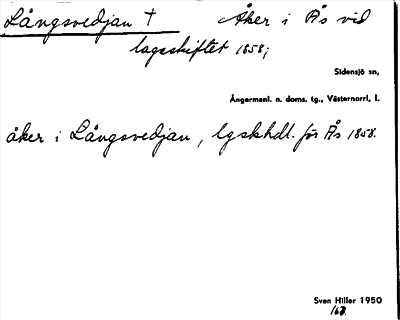 Långsvedjan † Åker i Ås vid
lagaskiftet 1858;
Sidensjö sn,
Ångermanl. n. doms. tg., Västernorrl. l.
åker i Långsvedjan, lgskhdl. för Ås 1858.
Sven Hiller 1950